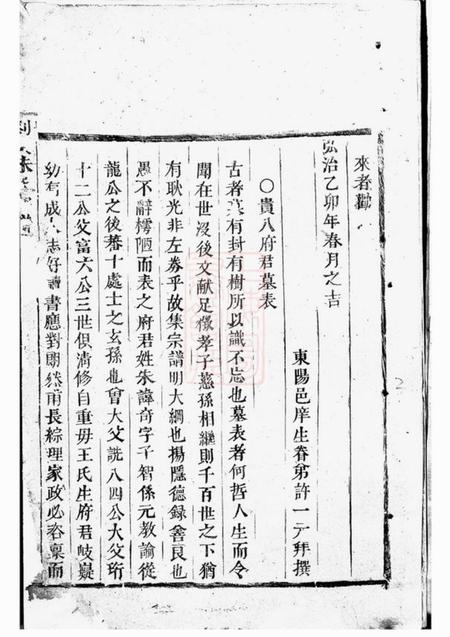 來者勸
弘治乙卯年春月之吉
東陽邑庠生眷弟許一元拜撰
○貴八府君墓表
古者墓有封有樹所以識不忘也墓表者何哲人生而令
聞在世沒後文献足徵孝子慈孫相繼則千百世之下猶
有耿光非左券乎故集宗譜明大綱也揚隱德録善良也
愚不辭樗陋而表之府君姓朱諱奇字子智係元教諭從
龍公之後蕃十處士之玄孫也曾大父諱八四公大父珩
十二公父富六公三世俱清修自重毋王氏生府君岐嶷
幼有成人志好讀書應對明然甫長綜理家政必咨稟而